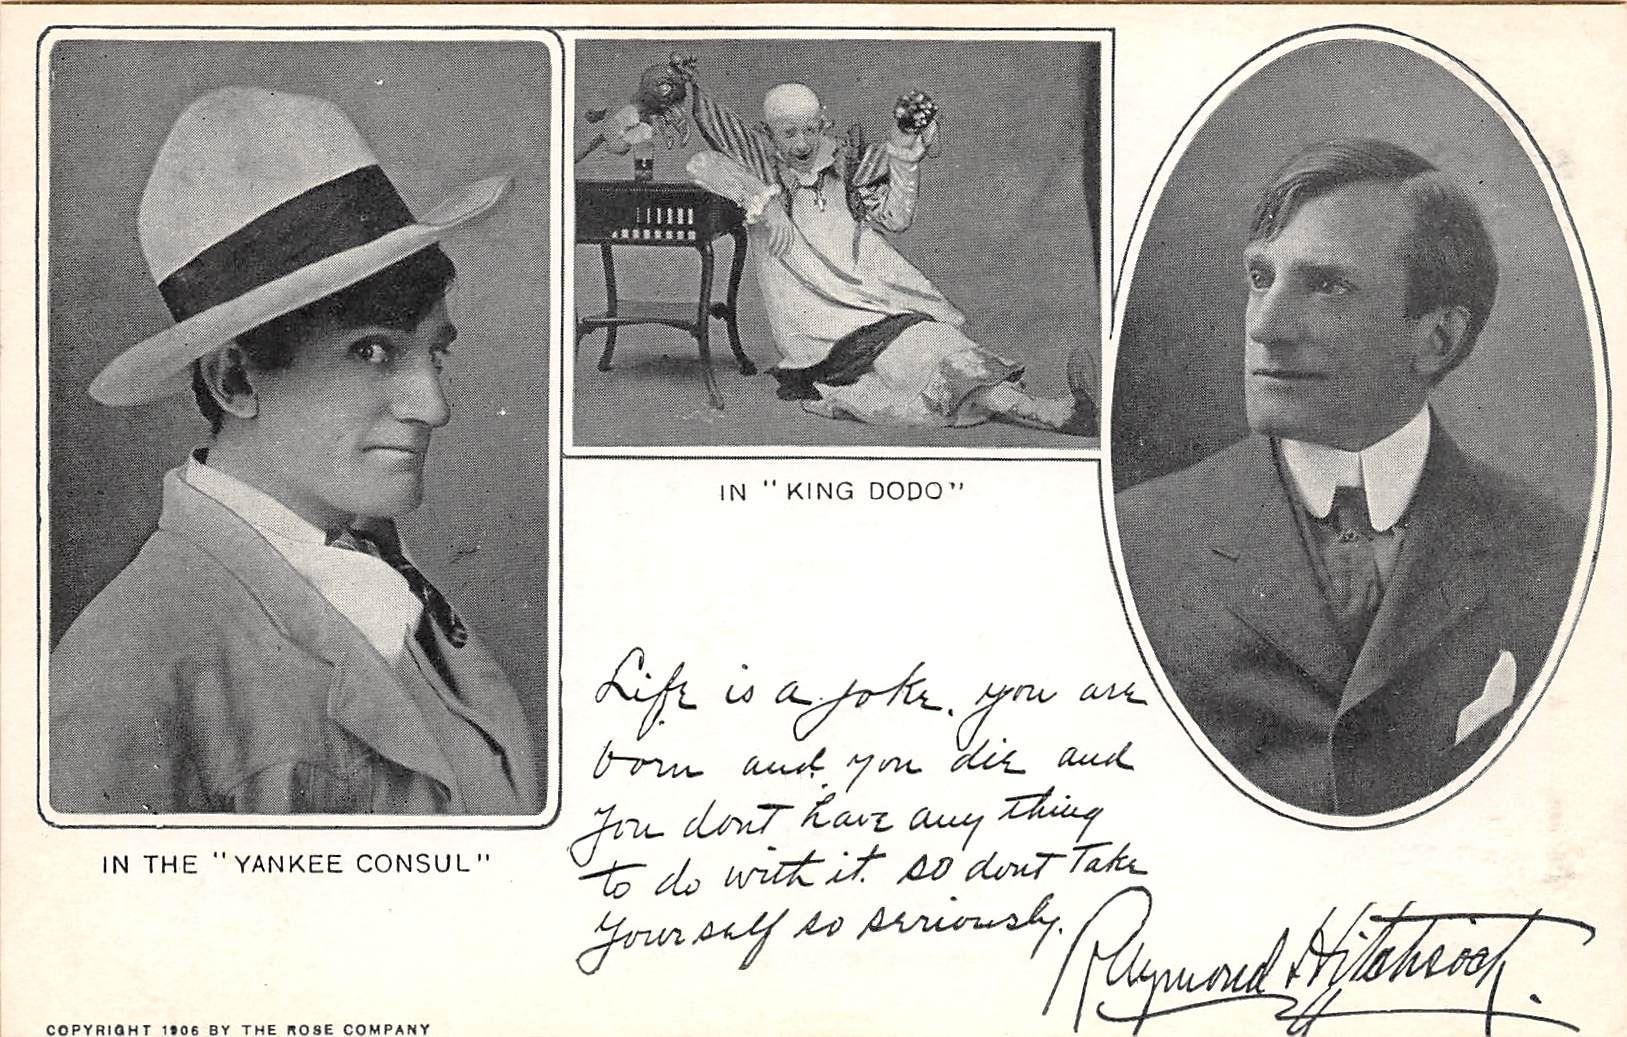 IN "KING DODO"
Life is a joke. you are
born and you die and
you dont have any thing
to do with it. so dont take
yourself so seriously.
Raymond Hitchcock.
IN THE "YANKEE CONSUL"
COPYRIGHT 1906 BY THE ROSE COMPANY